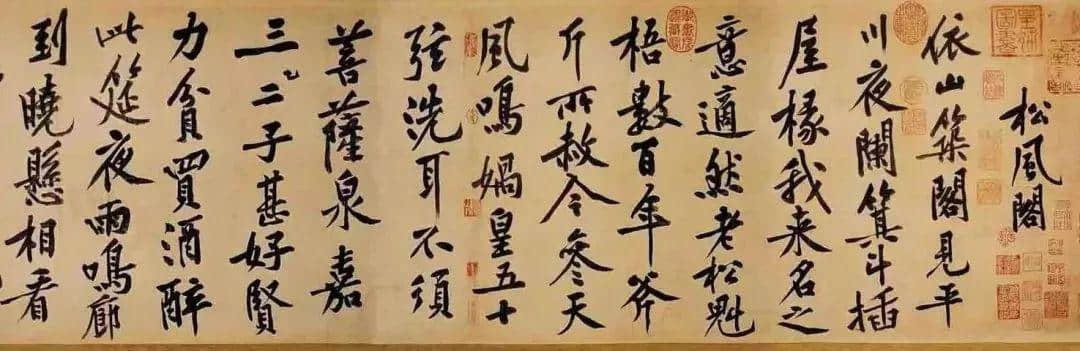 松風閣
依山築閣見平
川夜闌箕斗插
屋椽我来名之
意適然老松魁
梧數百年斧
斤所赦今參天
風鳴媧皇五十
弦洗耳不須
菩薩泉嘉
三二子甚好賢
力貧買酒醉
此筵夜雨鳴廊
到曉懸相看